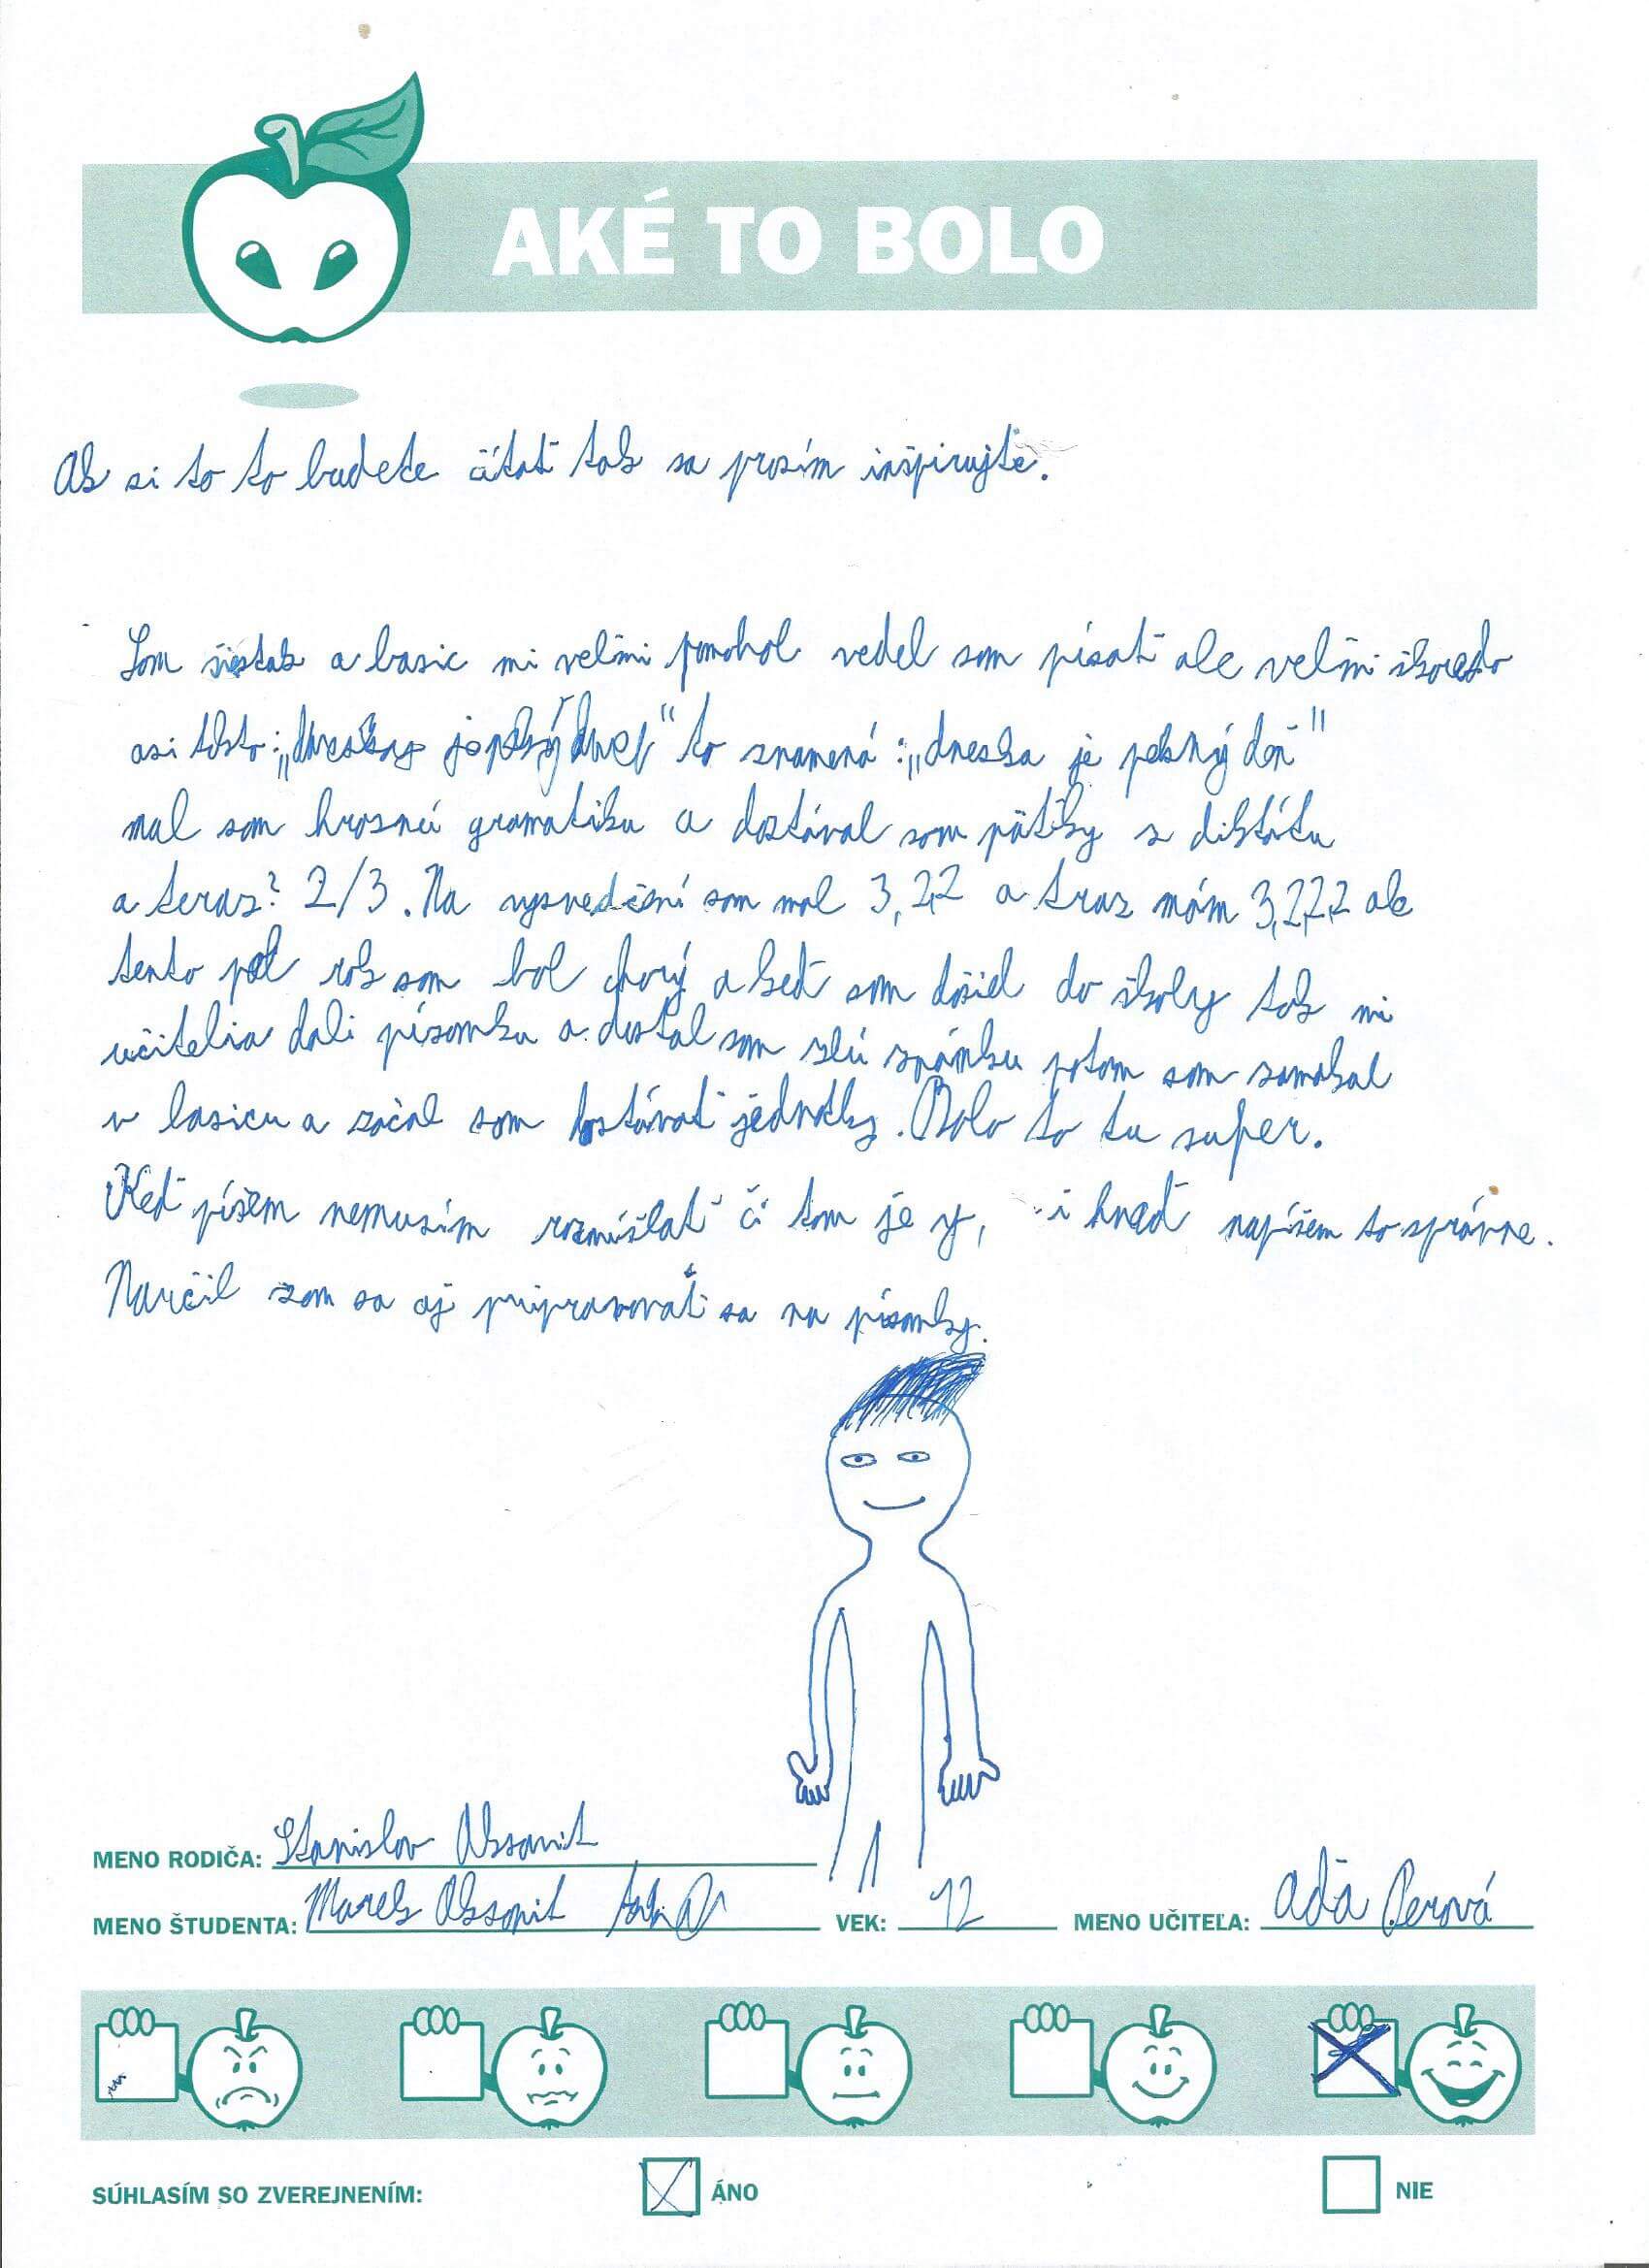 AKÉ TO BOLO
Ak si to to budete čítať tak sa prosím inšpirujte.
Som šiestak a basic mi veľmi pomohol vedel som písať ale veľmi škaredo
asi takto: to znamená: „dneska je pekný deň"
mal som hroznú gramatiku a dostával som päťky z diktátu
a teraz? 2/3. Na vysvedčení som mal 3,2,2 a traz mám 3,2,2,2 ale
tento pol rok som bol chorý a keď som došiel do školy tak mi
učitelia dali písomku a dostal som zlú známku potom som zamakal
v basicu a začal som dostávať jednotky. Bolo to tu super.
Keď píšem nemusím rozmíšlať či tam je y, i hneď napíšem to správne.
Naučil som sa aj pripravovať sa na písomky.
MENO RODIČA: Stanislav
MENO ŠTUDENTA: Marek VEK: 12 MENO UČITEĽA: Aďa Perová
SÚHLASÍM SO ZVEREJNENÍM: ÁNO NIE